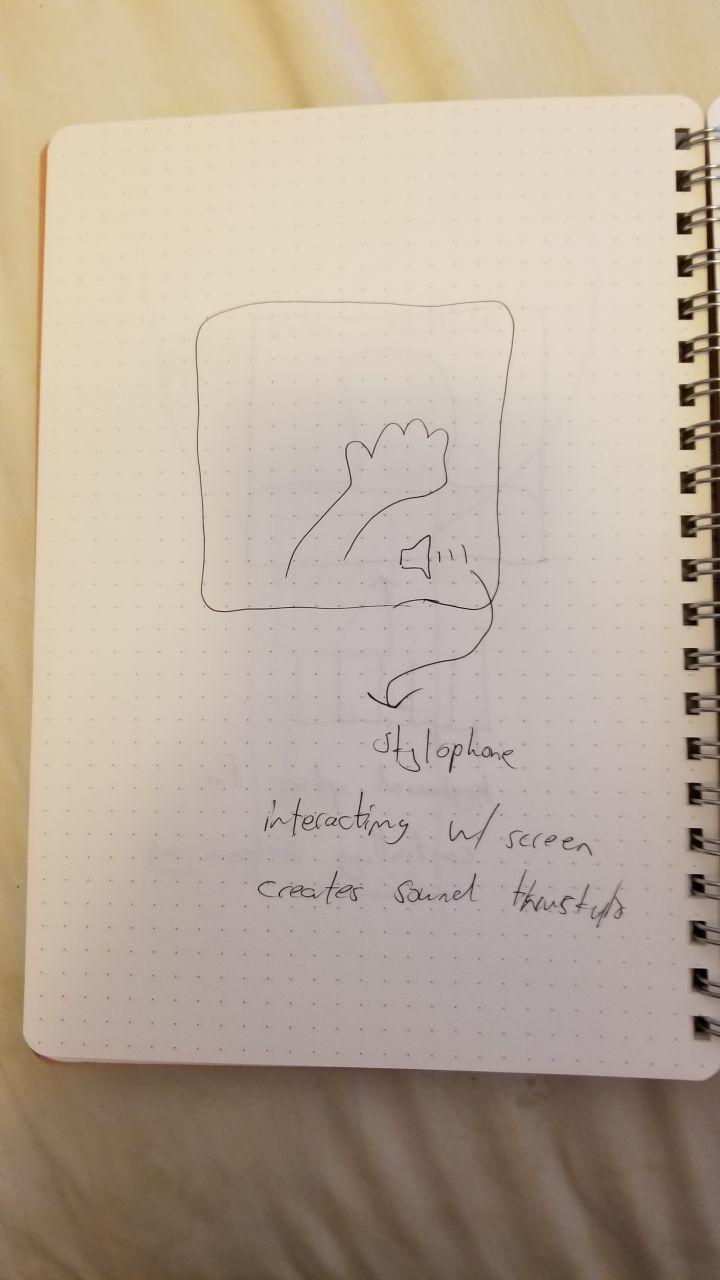 stylophone
interacting w/ screen
creates sound thru stylo